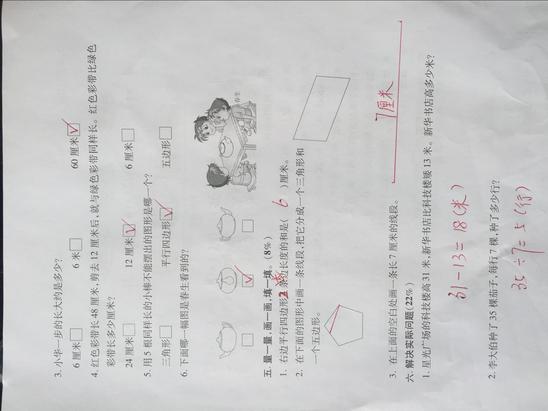 3. 小华一步的长大约是多少?
6 厘米□ 6 米□ 60 厘米☑
4. 红色彩带长 48 厘米,剪去 12 厘米后,就与绿色彩带同样长。红色彩带比绿色
彩带长多少厘米?
24 厘米□ 12 厘米☑ 6 厘米□
5. 用 5 根同样长的小棒不能摆出的图形是哪一个?
三角形□ 平行四边形☑ 五边形□
6. 下面哪一幅图是春生看到的?
春生
□ ☑ □
五. 量一量,画一画,填一填。(8%)
1. 右边平行四边形2条边长度的和是( 6 )厘米。
2. 在下面的图形中画一条线段,把它分成一个三角形和
一个五边形。
3. 在上面的空白处画一条长 7 厘米的线段。
7厘米
六. 解决实际问题(22%)
1. 星光广场的科技楼高 31 米,新华书店比科技楼矮 13 米。新华书店高多少米?
31-13=18(米)
2. 李大伯种了 35 棵茄子,每行 7 棵,种了多少行?
35÷7=5(行)